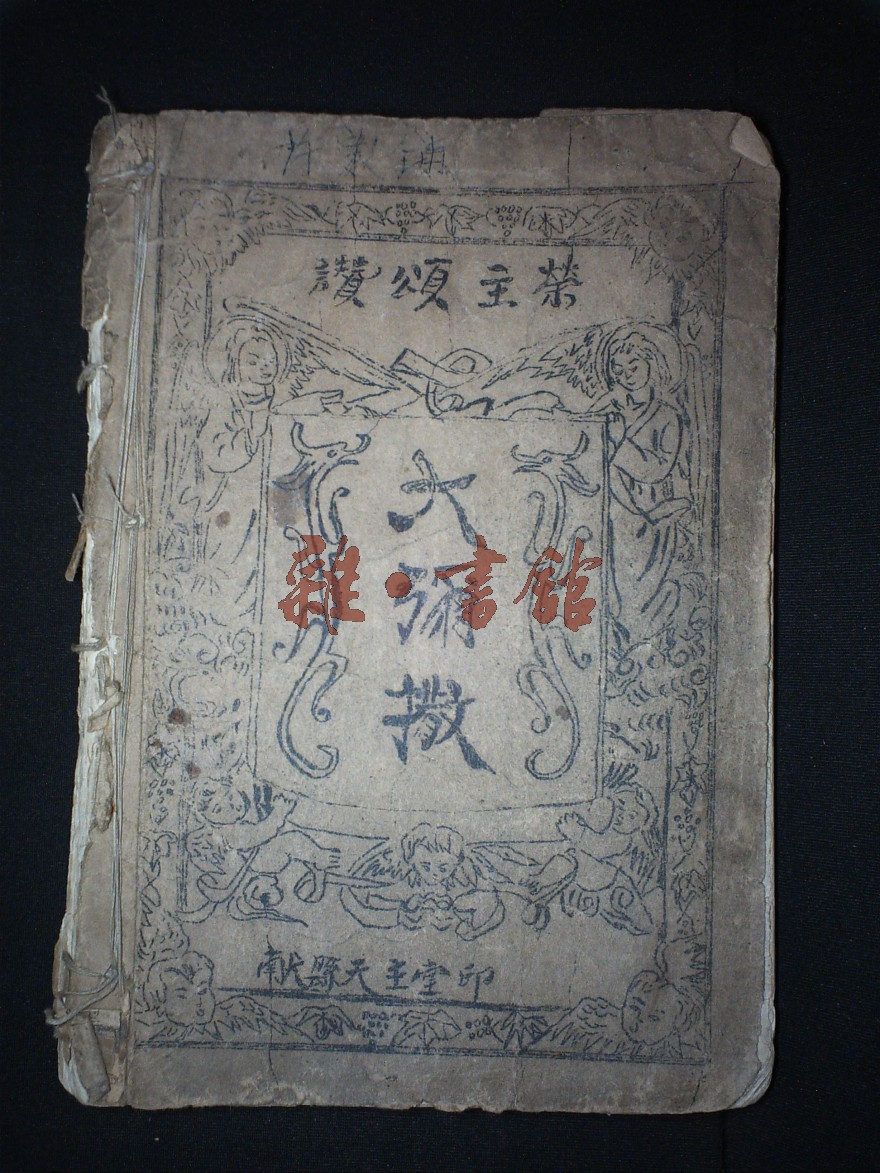 讚頌主榮
大彌撒
雜·書館
献縣天主堂印